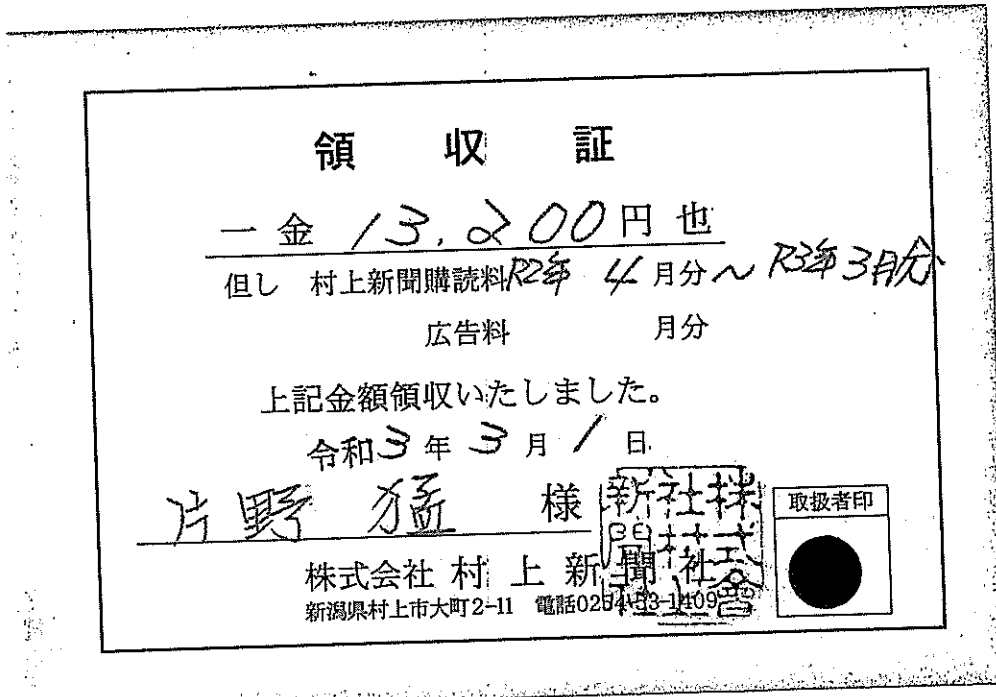 領収証
一金 13,200円也
但し 村上新聞購読料R2年 4月分～R3年3月分
広告料 月分
上記金額領収いたしました。
令和3年3月1日
片野 猛 様
取扱者印
株式会社 村上新聞社
新潟県村上市大町2-11 電話0254-53-1409